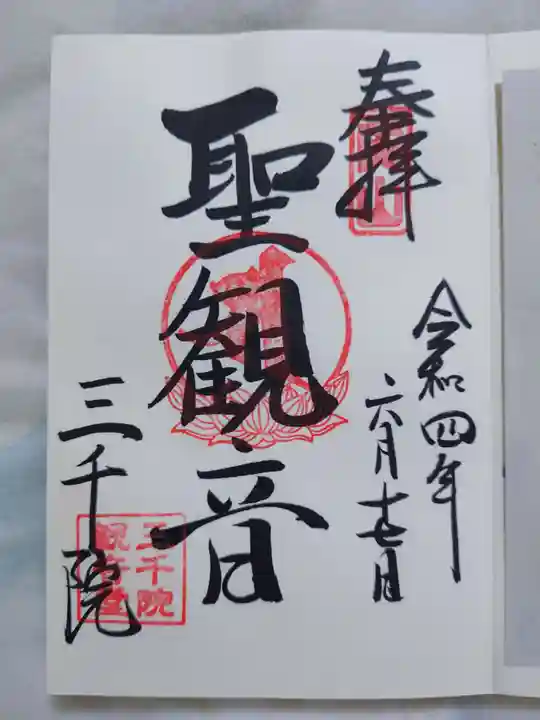 奉拝
令和四年
六月十七日
聖観音
三千院
三千院
観音堂